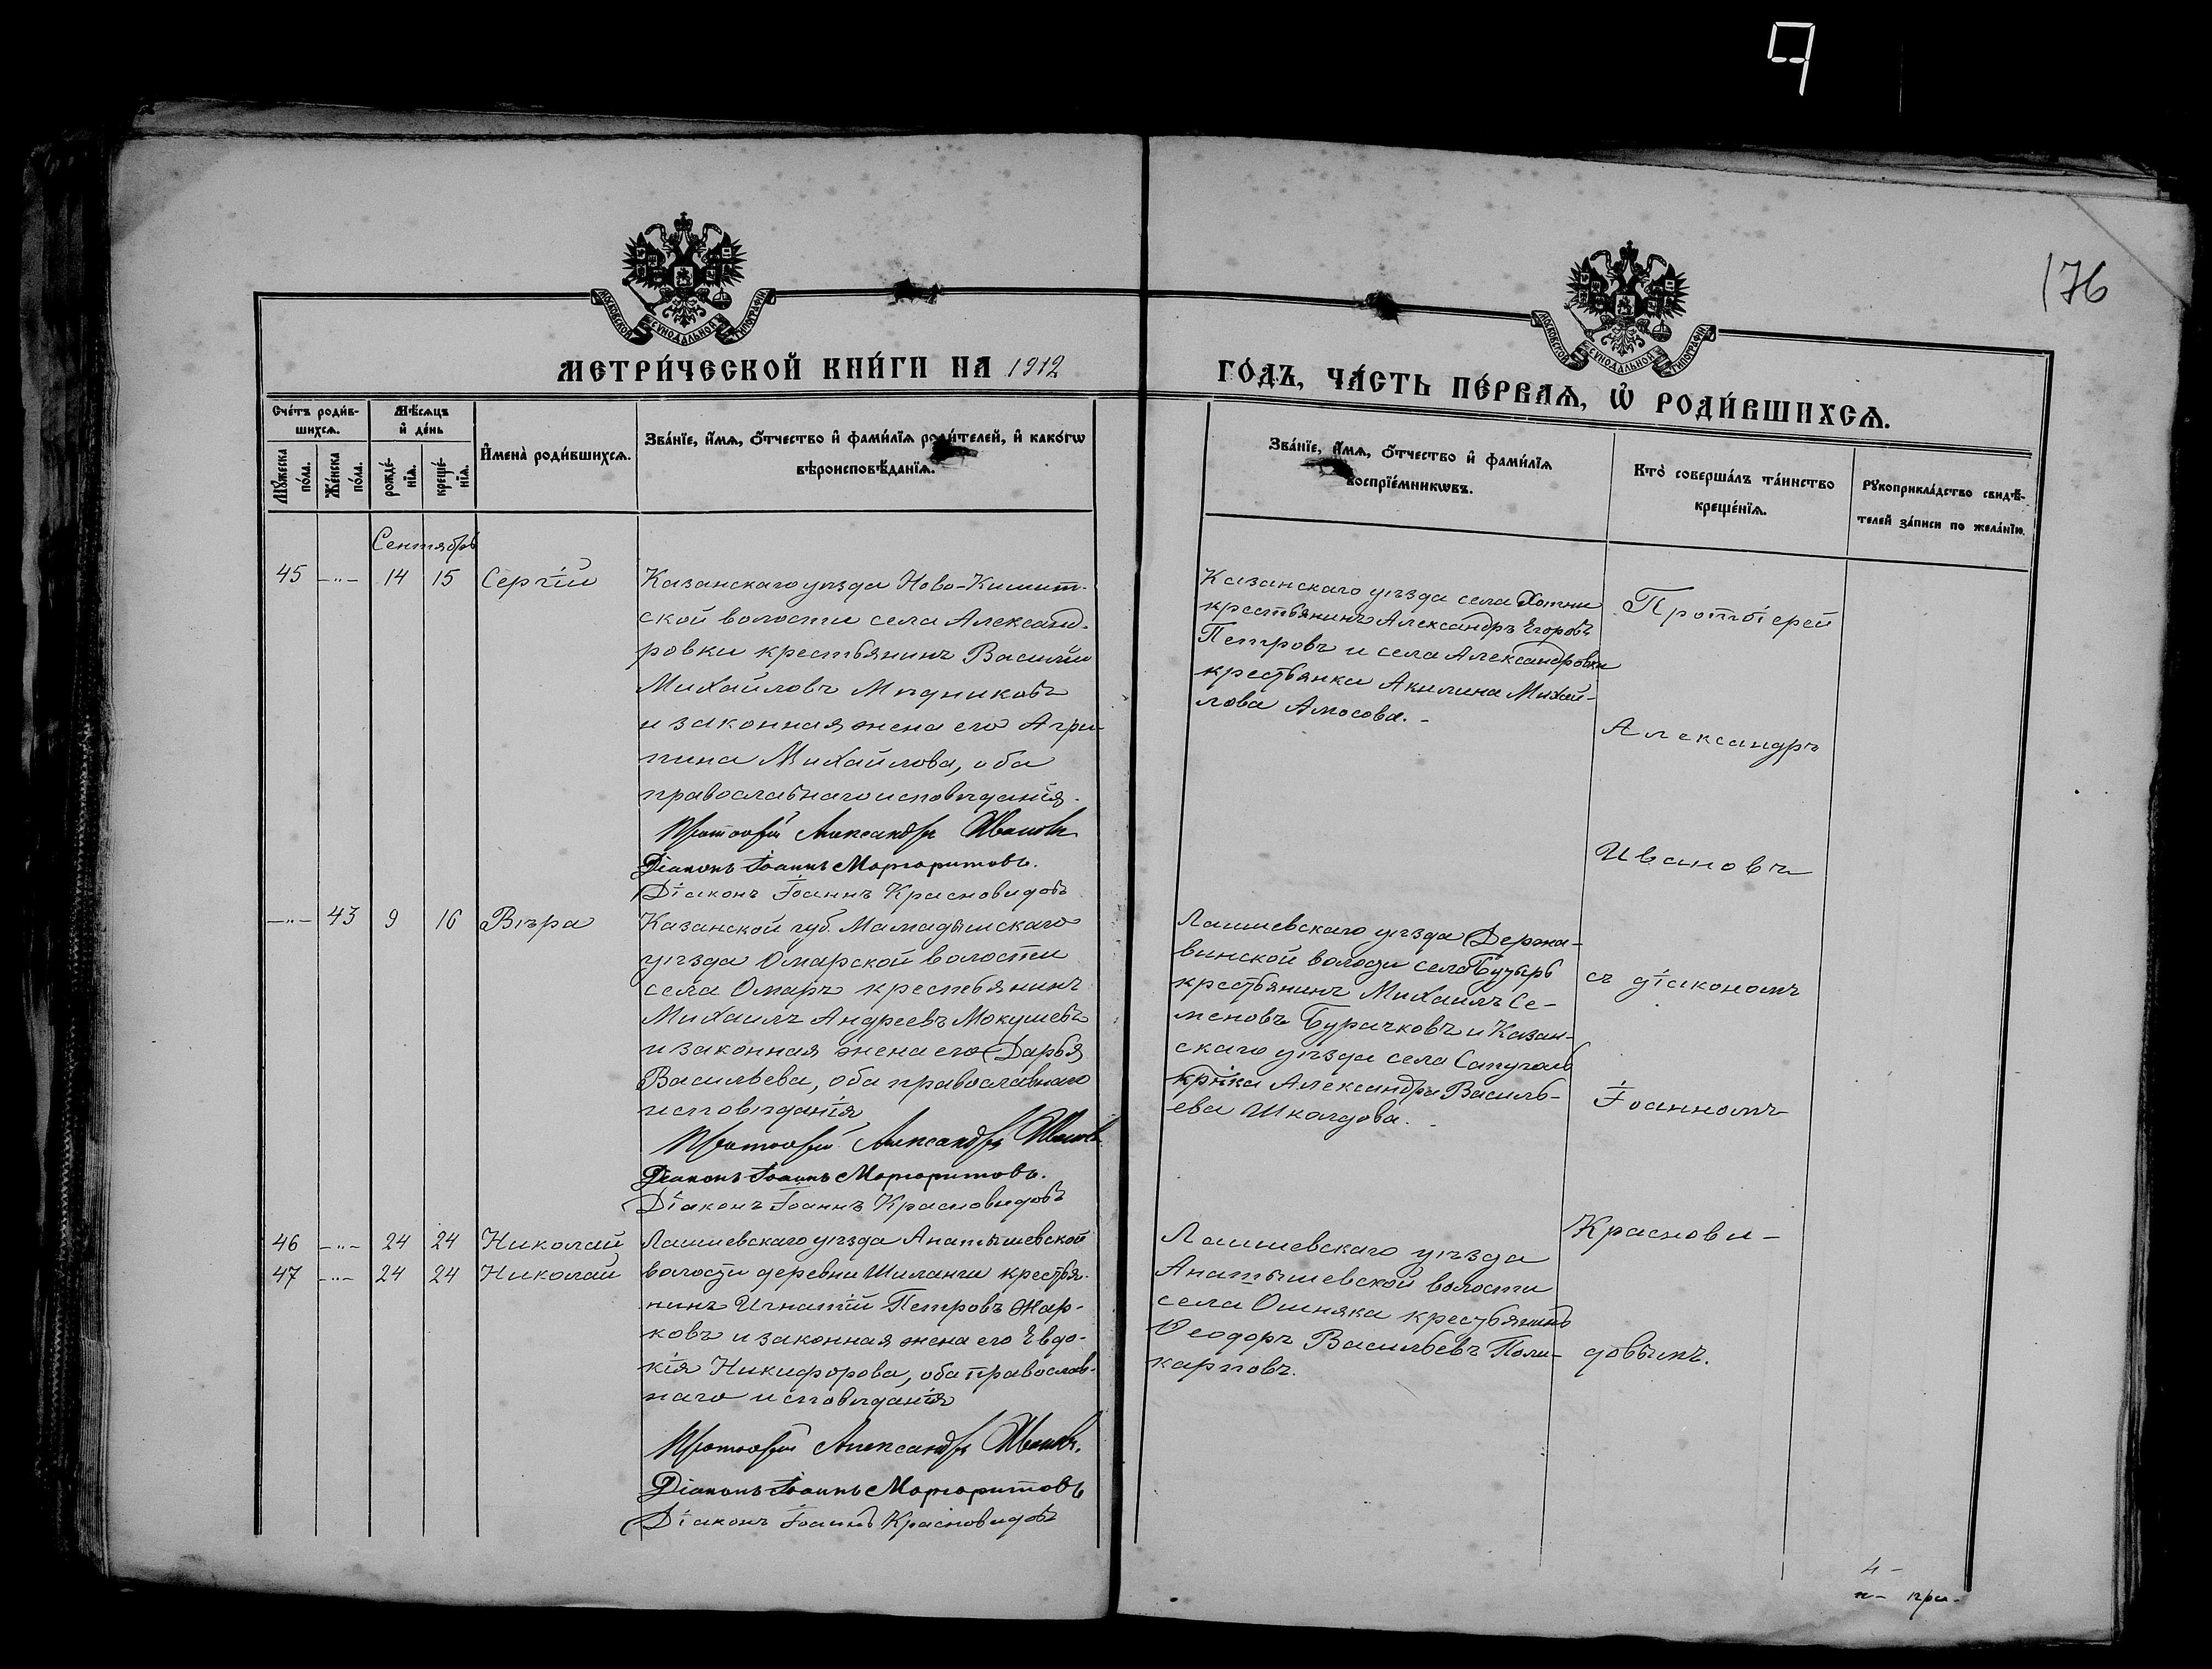 9
176
МОСКОВСКОЙ СѴНОДАЛЬНОЙ ТИПОГРАФІИ
МОСКОВСКОЙ СѴНОДАЛЬНОЙ ТИПОГРАФІИ
МЕТРИ́ЧЕСКОЙ КНИ́ГИ НА 1912
ГО́ДЪ, ЧА́СТЬ ПЕ́РВАѦ, Ѡ҆ РОДИ́ВШИХСѦ.
Сче́тъ роди́в-
шихсѧ.
Мꙋ́жеска
по́ла.
Же́нска
по́ла.
Мѣ́сѧцъ
и҆ де́нь
рожде́-
нїѧ.
креще́-
нїѧ.
И҆мена̀ роди́вшихсѧ.
Зва́нїе, и҆́мѧ, ѻ҆́тчество и҆ фами́лїѧ роди́телей, и҆ како́гѡ
вѣроисповѣ́данїѧ.
Зва́нїе, и҆́мѧ, ѻ҆́тчество и҆ фами́лїѧ
воспрїе́мникѡвъ.
Кто̀ соверша́лъ та́инство
креще́нїѧ.
Рꙋкоприкла́дство свидѣ́-
телей за́писи по жела́нїю.
Сентябрь
45 -"- 14 15 Сергій
Казанскаго уѣзда Ново-Кишит-
ской волости села Александ-
ровки крестьянинъ Василій
Михайловъ Мѣдниковъ
и законная жена его Агри-
пина Михайлова, оба
православнаго исповѣданія.
Протоіерей Александръ Ивановъ
Діаконъ Іоаннъ Маргаритовъ.
Діаконъ Іоаннъ Красновидовъ
Казанскаго уѣзда села Хотни
крестьянинъ Александръ Егоровъ
Петровъ и села Александровки
крестьянка Акилина Михай-
лова Амосова.-
-"- 43 9 16 Вѣра
Казанской губ. Мамадышскаго
уѣзда Омарской волости
села Омаръ крестьянинъ
Михаилъ Андреевъ Мокушевъ
и законная жена его Дарья
Васильева, оба православнаго
исповѣданія
Протоіерей Александръ Ивановъ.
Діаконъ Іоаннъ Маргаритовъ.
Діаконъ Іоаннъ Красновидовъ
Лаишевскаго уѣзда Держа-
винской волости село
крестьянинъ Михаилъ Се-
меновъ Бурачковъ и Казан-
скаго уѣзда села
кр-нка Александра Василь-
ева Шкалдова.-
46 -"- 24 24 Николай
47 -"- 24 24 Николай
Лаишевскаго уѣзда Анатышевской
волости деревни Шиланги крестья-
нинъ Игнатій Петровъ Жар-
ковъ и законная жена его Евдо-
кія Никифорова, оба православ-
наго исповѣданія
Протоіерей Александръ Ивановъ.
Діаконъ Іоаннъ Маргаритовъ
Діаконъ Іоаннъ Красновидовъ
Лаишевскаго уѣзда
Анатышевской волости
села Ошняка крестьянинъ
Ѳеодоръ Васильевъ Поли-
карповъ.
Протоіерей
Александръ
Ивановъ
съ діакономъ
Іоанномъ
Краснови-
довымъ.